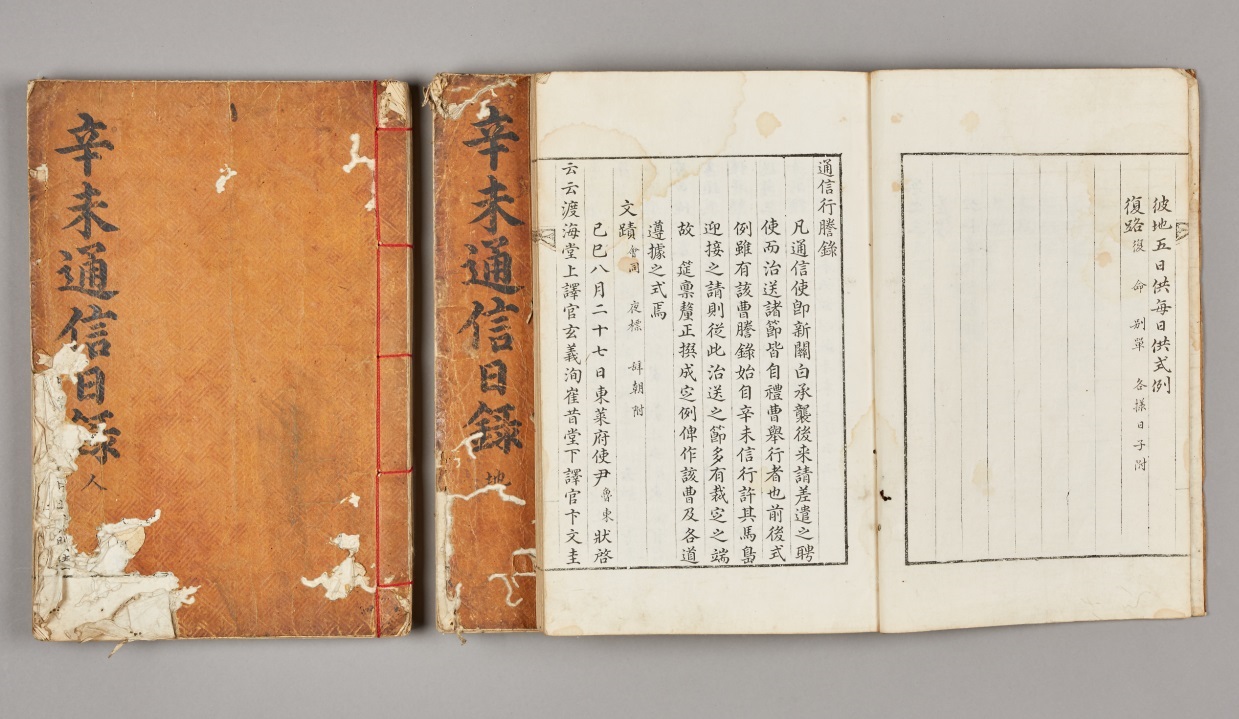 辛未通信日錄 人
辛未通信日錄 地
彼地五日供每日供式例
復路 復命 別單 各樣日子附
通信行謄錄
凡通信使卽新關白承襲後來請差遣之聘
使而治送諸節皆自禮曹舉行者也前後式
例雖有該曹謄錄始自辛未信行許其馬島
迎接之請則從此治送之節多有裁定之端
故 筵稟釐正撰成定例俾作該曹及各道
遵據之式焉
文蹟 會同 夜標 辭朝附
己巳八月二十七日東萊府使尹魯東狀啓
云云渡海堂上譯官玄義洵崔昔堂下譯官卞文圭